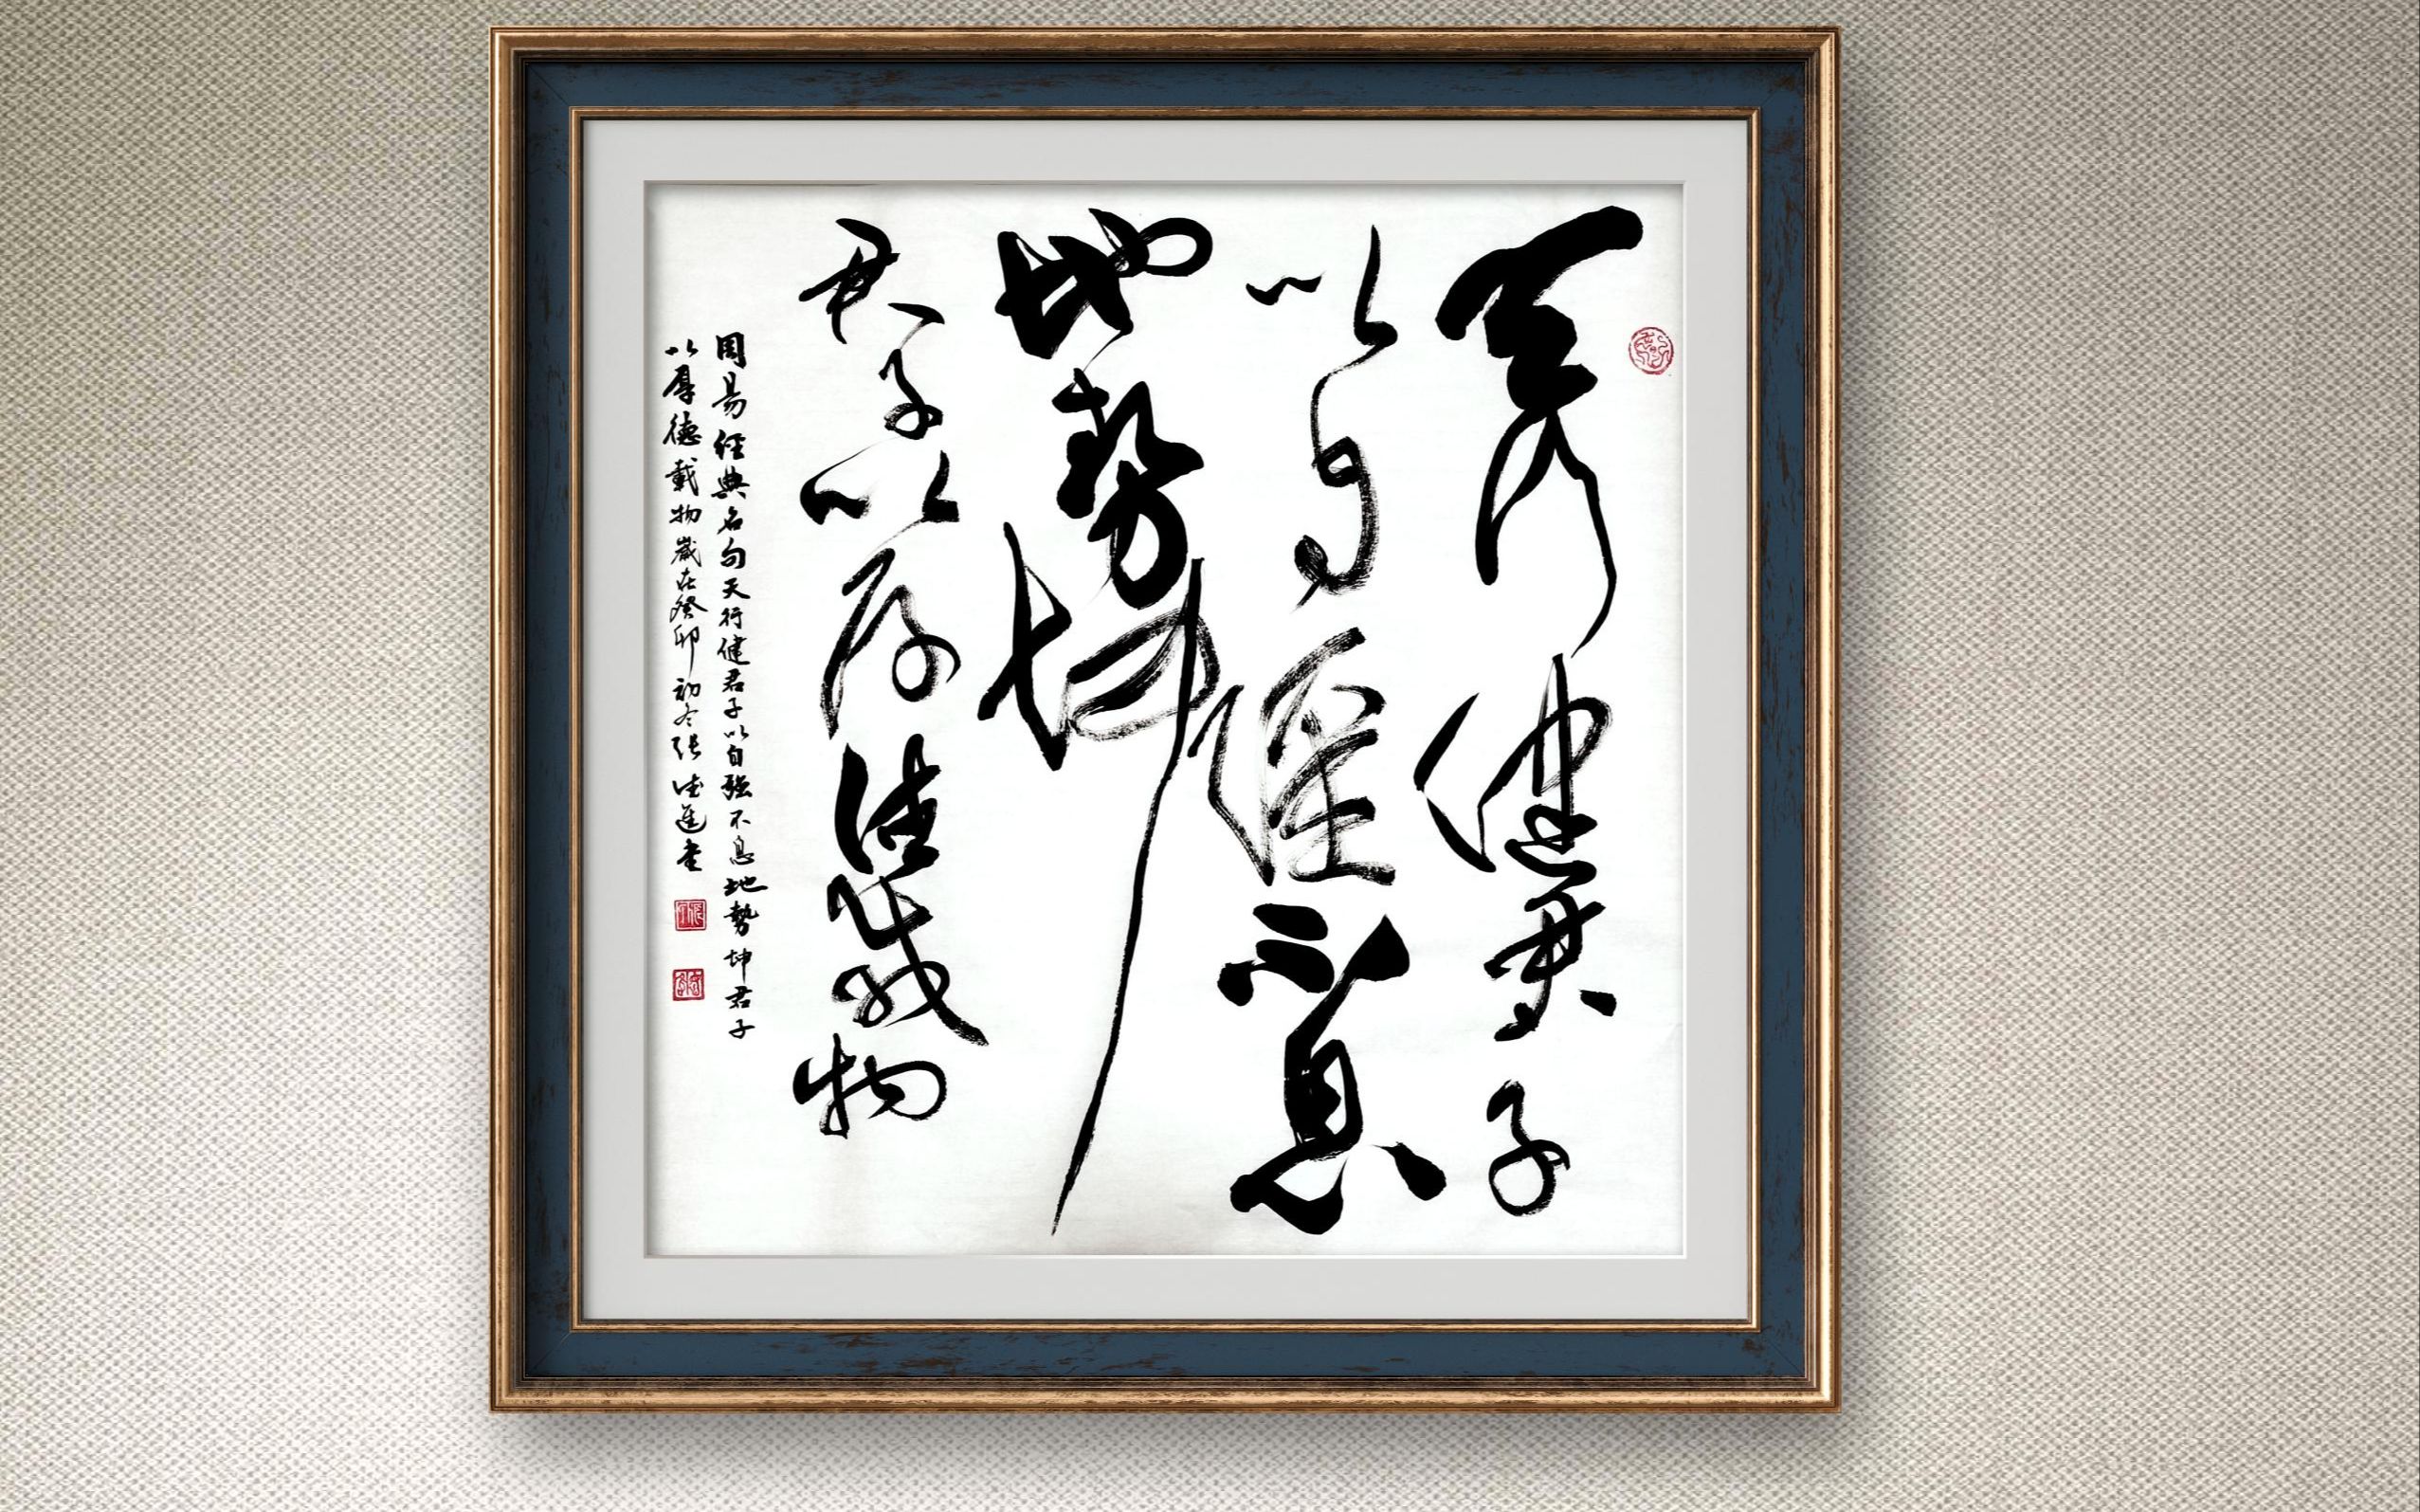 天行健君子
以自强不息
地势坤
君子以厚德载物
周易经典名句天行健君子以自强不息地势坤君子
以厚德载物岁在癸卯初冬张进书